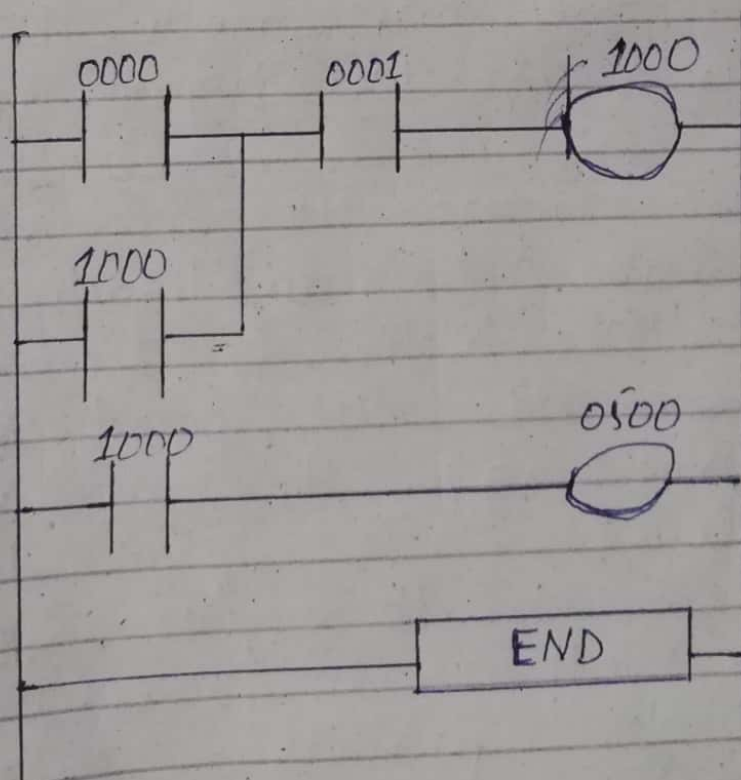 0000 0001 1000
1000
1000 0500
END